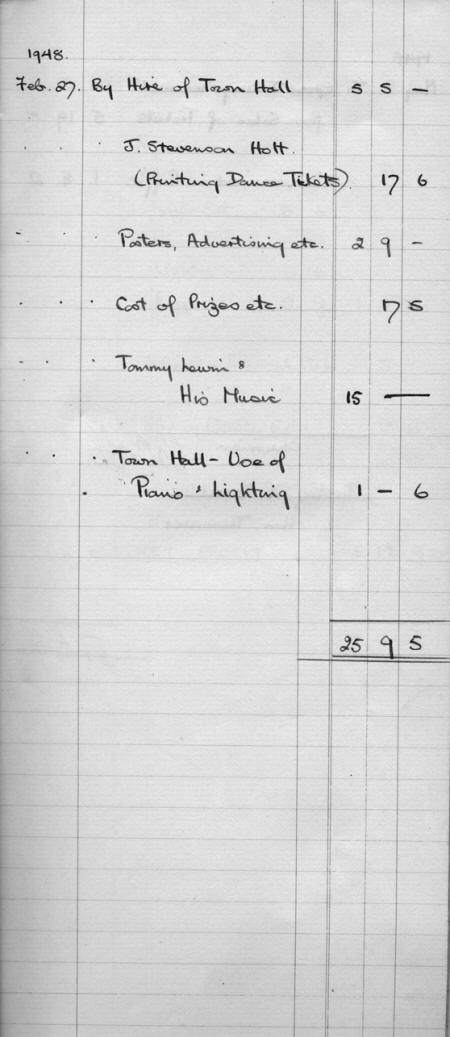 1948.
Feb. 27. By Hire of Town Hall 5 5 —
" " " J. Stevenson Holt.
(Printing Dance Tickets) 17 6
" " " Posters, Advertising etc. 2 9 -
" " " Cost of Prizes etc. 17 5
" " " Tommy Lewin &
His Music 15 —
" " " Town Hall - Use of
" Piano & Lighting 1 - 6
25 9 5